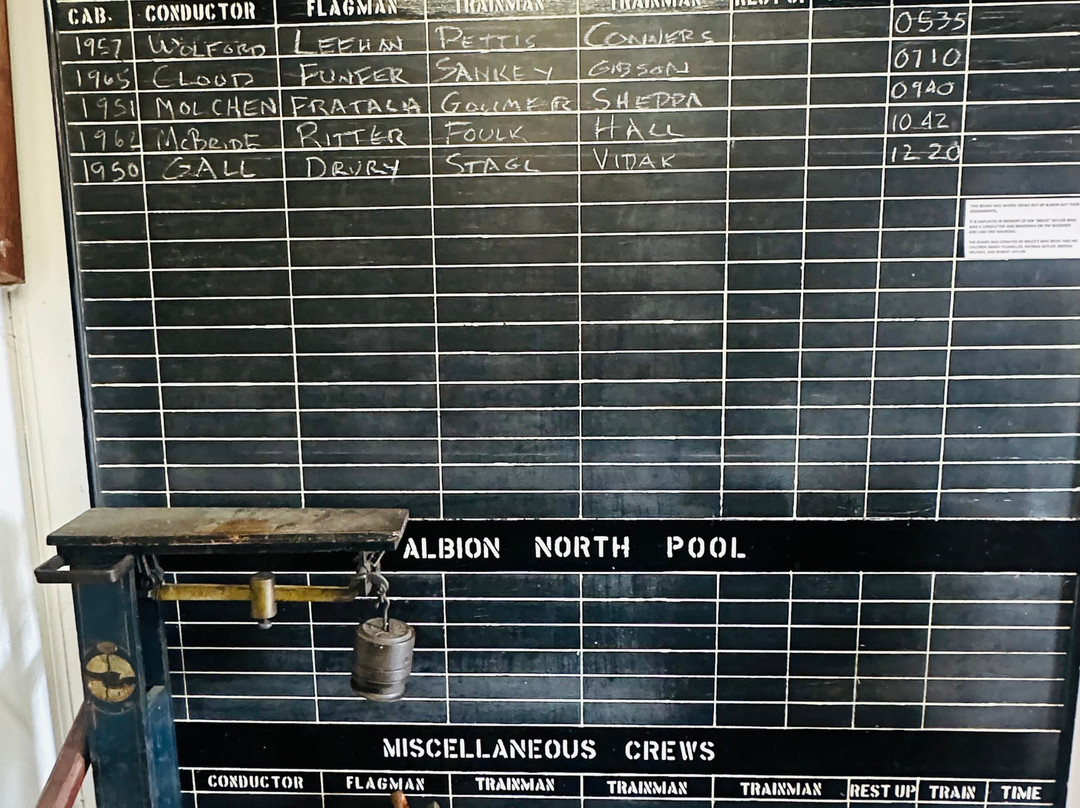 CAB. CONDUCTOR FLAGMAN TRAINMAN TRAINMAN REST UP
1957 WOLFORD LEEHAN PETTIS CONNERS 0535
1965 CLOUD FUNFER SANKEY GIBSON 0710
1951 MOLCHEN FRATAGA GOLIMER SHEPPA 0940
1962 McBRIDE RITTER FOULK HALL 10 42
1950 GALL DRURY STAGL VIDAK 12 20
THIS BOARD WAS WHERE CREWS OUT OF ALBION GOT THEIR
ASSIGNMENTS.
ALBION NORTH POOL
MISCELLANEOUS CREWS
CONDUCTOR FLAGMAN TRAINMAN TRAINMAN TRAINMAN REST UP TRAIN TIME